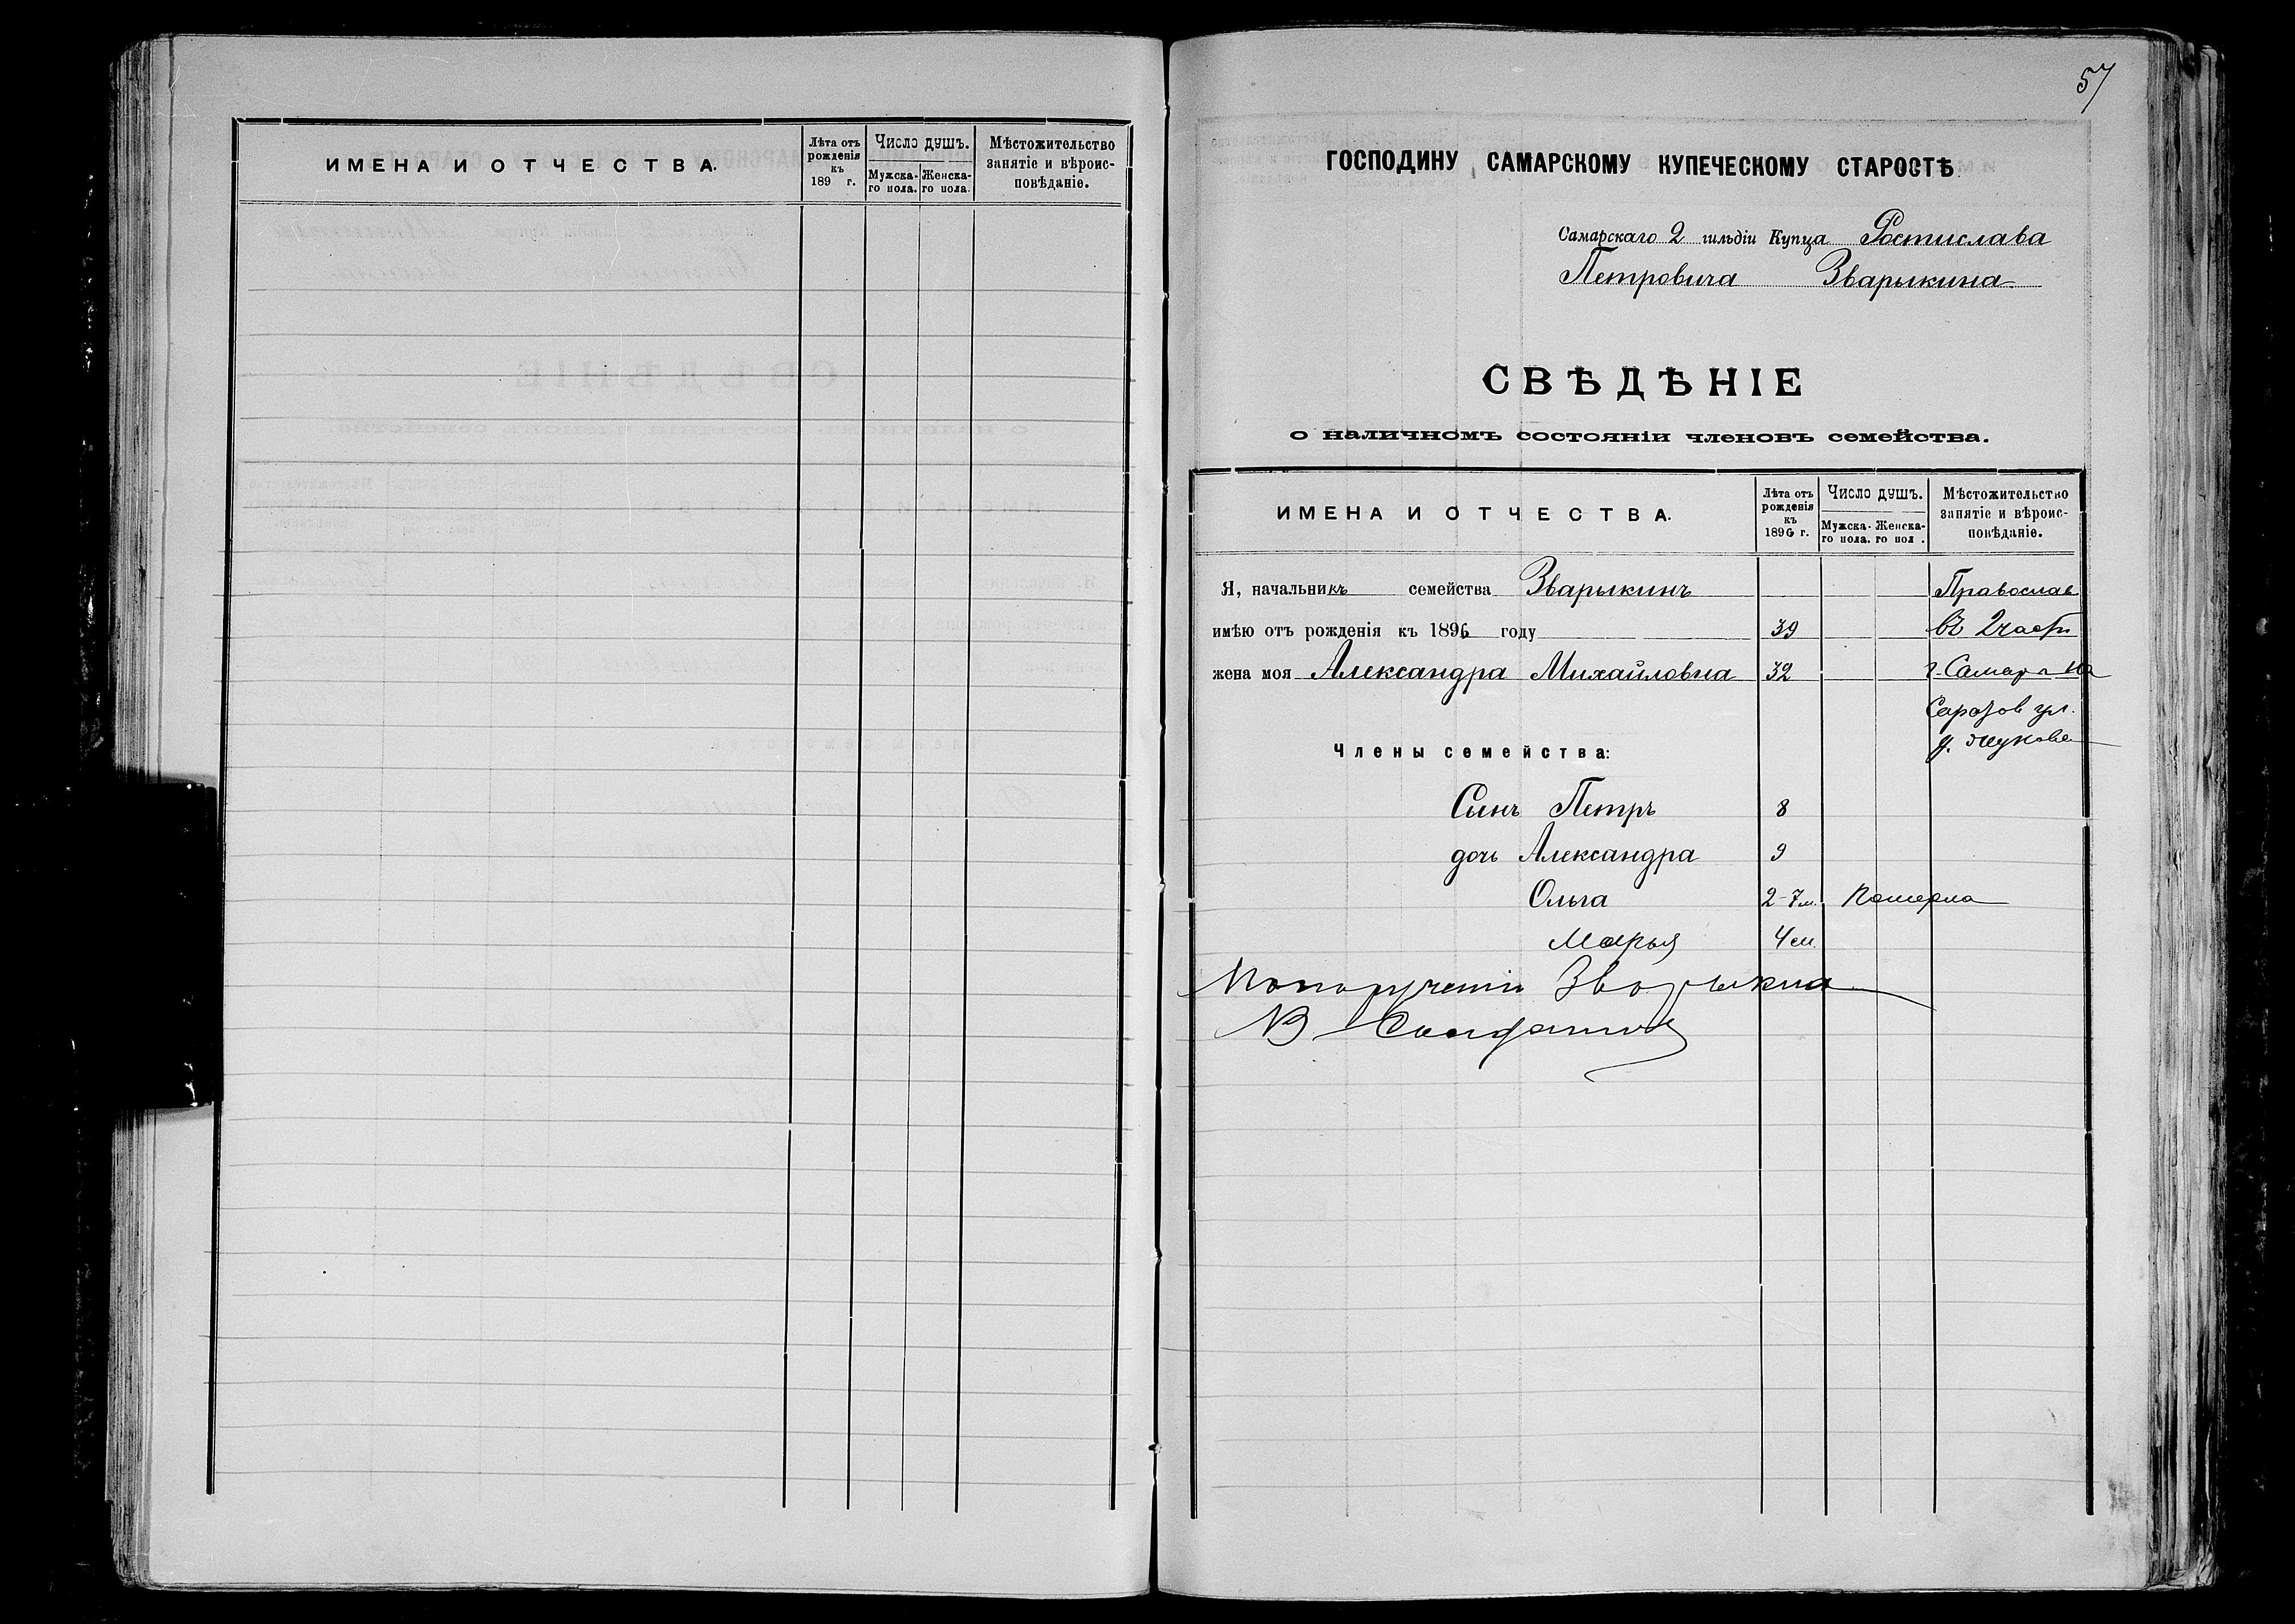 ИМЕНА И ОТЧЕСТВА.
Лѣта отъ рожденія къ 189 г.
Число душъ.
Мужска-го пола.
Женска-го пола.
Мѣстожительство занятіе и вѣроис-повѣданіе.
57
ГОСПОДИНУ САМАРСКОМУ КУПЕЧЕСКОМУ СТАРОСТѢ
Самарскаго 2 гильдіи Купца Ростислава
Петровича Зварыкина
СВѢДѢНІЕ
о наличномъ состояніи членовъ семейства.
ИМЕНА И ОТЧЕСТВА.
Лѣта отъ рожденія къ 1896 г.
Число душъ.
Мужска-го пола.
Женска-го пол .
Мѣстожительство занятіе и вѣроис-повѣданіе.
Я, начальникъ семейства Зварыкинъ Православ
имѣю отъ рожденія къ 1896 году 39 въ 2 части
жена моя Александра Михайловна 32 г. Самар на
Саратов ул.
Члены семейства: д. Жукова
Сынъ Петръ 8
дочь Александра 9
Ольга 2-7 м. Померла
Марья 4 м.
По порученію Зворыкина